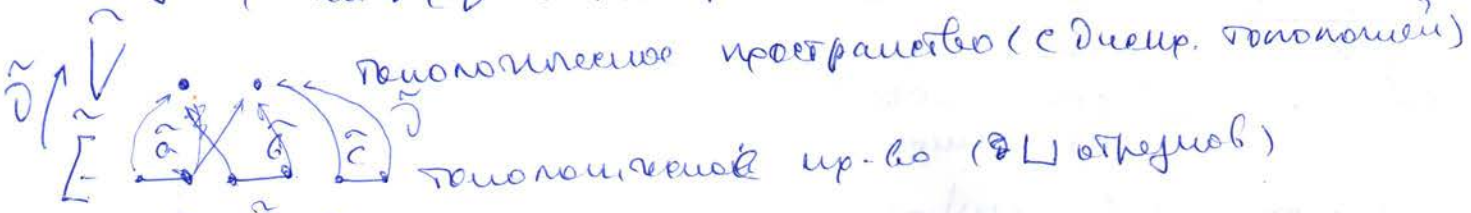 Ṽ топологическое пространство (с дискр. топологией)
∂̃
Ẽ ã b̃ c̃ ∂̃ топологическое пр-во (⊔ отрезков)